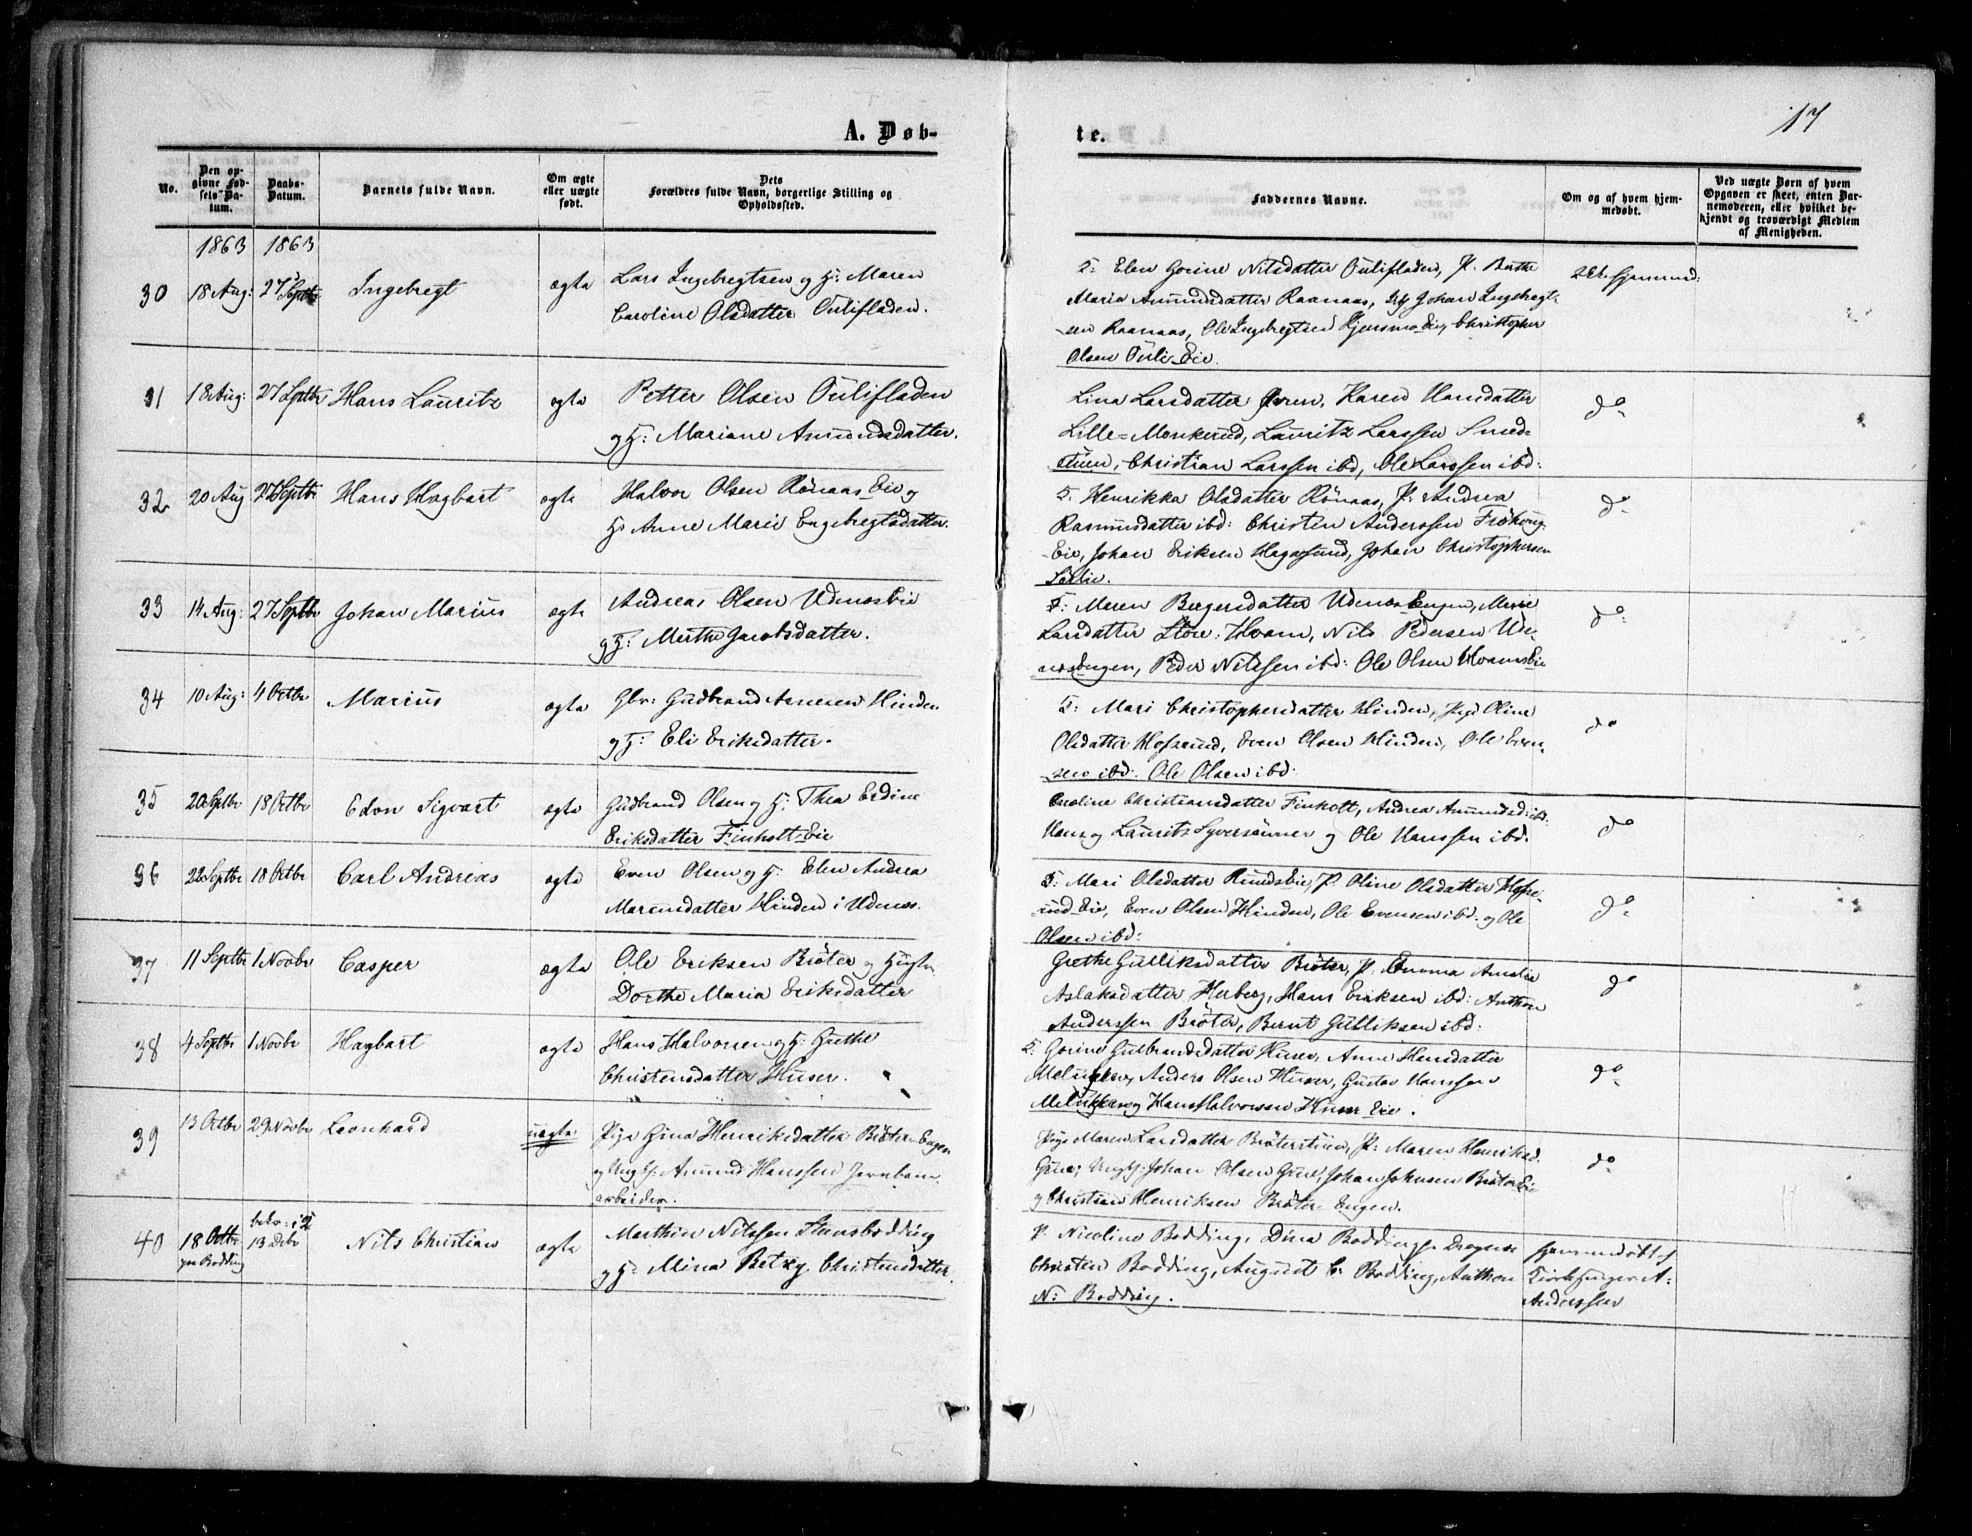 17
A. Døb-
te.
No.
Den op-
givne Fød-
sels-Da-
tum.
Daabs-
Datum.
Barnets fulde Navn.
Om ægte
eller uægte
født.
Dets
Forældres fulde Navn, borgerlige Stilling og
Opholdssted.
Faddernes Navne.
Om og af hvem hjem-
medøbt.
Ved uægte Børn af hvem
Opgaven er skeet, enten Bar-
nemoderen, eller hvilket be-
kjendt og troværdigt Medlem
af Menigheden.
1863 1863
30 18 Aug: 27 Septbr Ingebregt ægta
Lars Ingebregtsen og H: Maren
Caroline Olsdatter Oulifladen.
F: Elen Gorine Nilsdatter Oulifladen, P. Berthe
Maria Amundsdatter Raanaas, Johan Ingebregt-
sen Raanaas, Ole Ingebregtsen Hjensmo Eie, Christopher
Olsen Ouli-Eie.
31 18 Aug: 27 Septbr Hans Lauritz ægta
Petter Olsen Oulifladen
og H: Mariane Amundsdatter.
Lina Larsdatter Karen Hansdatter
Lille-Monkerud, Lauritz Larssen Smed-
stuen, Christian Larssen ibd, Ole Larssen ibd:
do
32 20 Aug 27 Septbr Hans Hagbart ægta
Halvor Olsen Rønaas Eie og
H: Anne Marie Engebregtsdatter.
F. Henrikka Olsdatter Rønaas, P: Andrea
Rasmusdatter ibd: Christen Anderssen Frøhaug-
Eie, Johan Eriksen Hagesund, Johan Christophersen
do
33 14 Aug: 27 Septbr Johan Marius ægta
Andreas Olsen Udnæs Eie
og H: Marthe Jacobsdatter.
F: Maren Birgersdatter Udnæs Engen, Marie
Larsdatter Store-Hvam, Nils Pedersen Ud-
næsengen, Peder Nilssen ibd: Ole Olsen Hvams Eie
do
34 10 Aug: 4 Octbr Marius ægta
Gbr: Gudbrand Arnesen Hinden
og H: Eli Eriksdatter.
F: Mari Christophersdatter Hinden, Pige Oline
Olsdatter Hofsrud, Even Olsen Hinden, Ole Even-
sen ibd: Ole Olsen ibd:
do
35 20 Septbr 18 Octbr Edon Sigvart ægta
Gudbrand Olsen og H: Thea Erdine
Eriksdatter Finholt-Eie
Caroline Christiansdatter Finholt, Andrea Amundsd: ibd:
Hans og Laurits Syversønner og Ole Hanssen ibd.
do
36 22 Septbr 18 Octbr Carl Andreas ægta
Even Olsen og H: Elen Andrea
Hinden i Udnæs.
F: Mari Olsdatter Runds Eie, P. Oline Olsdatter Hofs-
rud Eie, Even Olsen Hinden, Ole Evensen ibd. og Ole
Olsen ibd:
do
37 11 Septbr 1 Novbr Casper ægta
Ole Eriksen Brøter og Hustr.
Dorthe Maria Eriksdatter
Grethe Gulliksdatter Brøter, P. Emma Amalie
Aslaksdatter Herberg, Hans Eriksen ibd: Anthon
Anderssen Brøter, Bernt Gulliksen ibd:
do
38 4 Septbr 1 Novbr Hagbart ægta
Hans Halvorsen og H: Grethe
Christensdatter Huser.
F: Gorine Gulbrandsdatter Huser, Anne Hansdatter
Anders Olsen Huser, Gustav Hanssen
og Hans Halvorsen Huser Eie.
do
39 13 Octbr 29 Novbr Leonhard uægta
Pige Gina Henriksdatter Brøter-Engen
og Ungk: Amund Hanssen Jernbane
arbeider.
Pige Maren Larsdatter Brøterstuen, P: Maren Henriksd.
Grue, Ungk: Johan Olsen Grue, Johan Johnsen Brøter Eie
og Christian Henriksen Brøter-Engen.
do
40 18 Octbr
bekr: i
13 Debr Nils Christian ægta
Marthin Nilssen Stensbodding
og H: Mina Betzy Christensdatter.
P. Nicoline Bodding, Dina Bodding,
Christen Bodding, August C. Bodding, Anthon
N: Bodding.
hjemmedøbt af
Kirkesanger A.
Anderssen